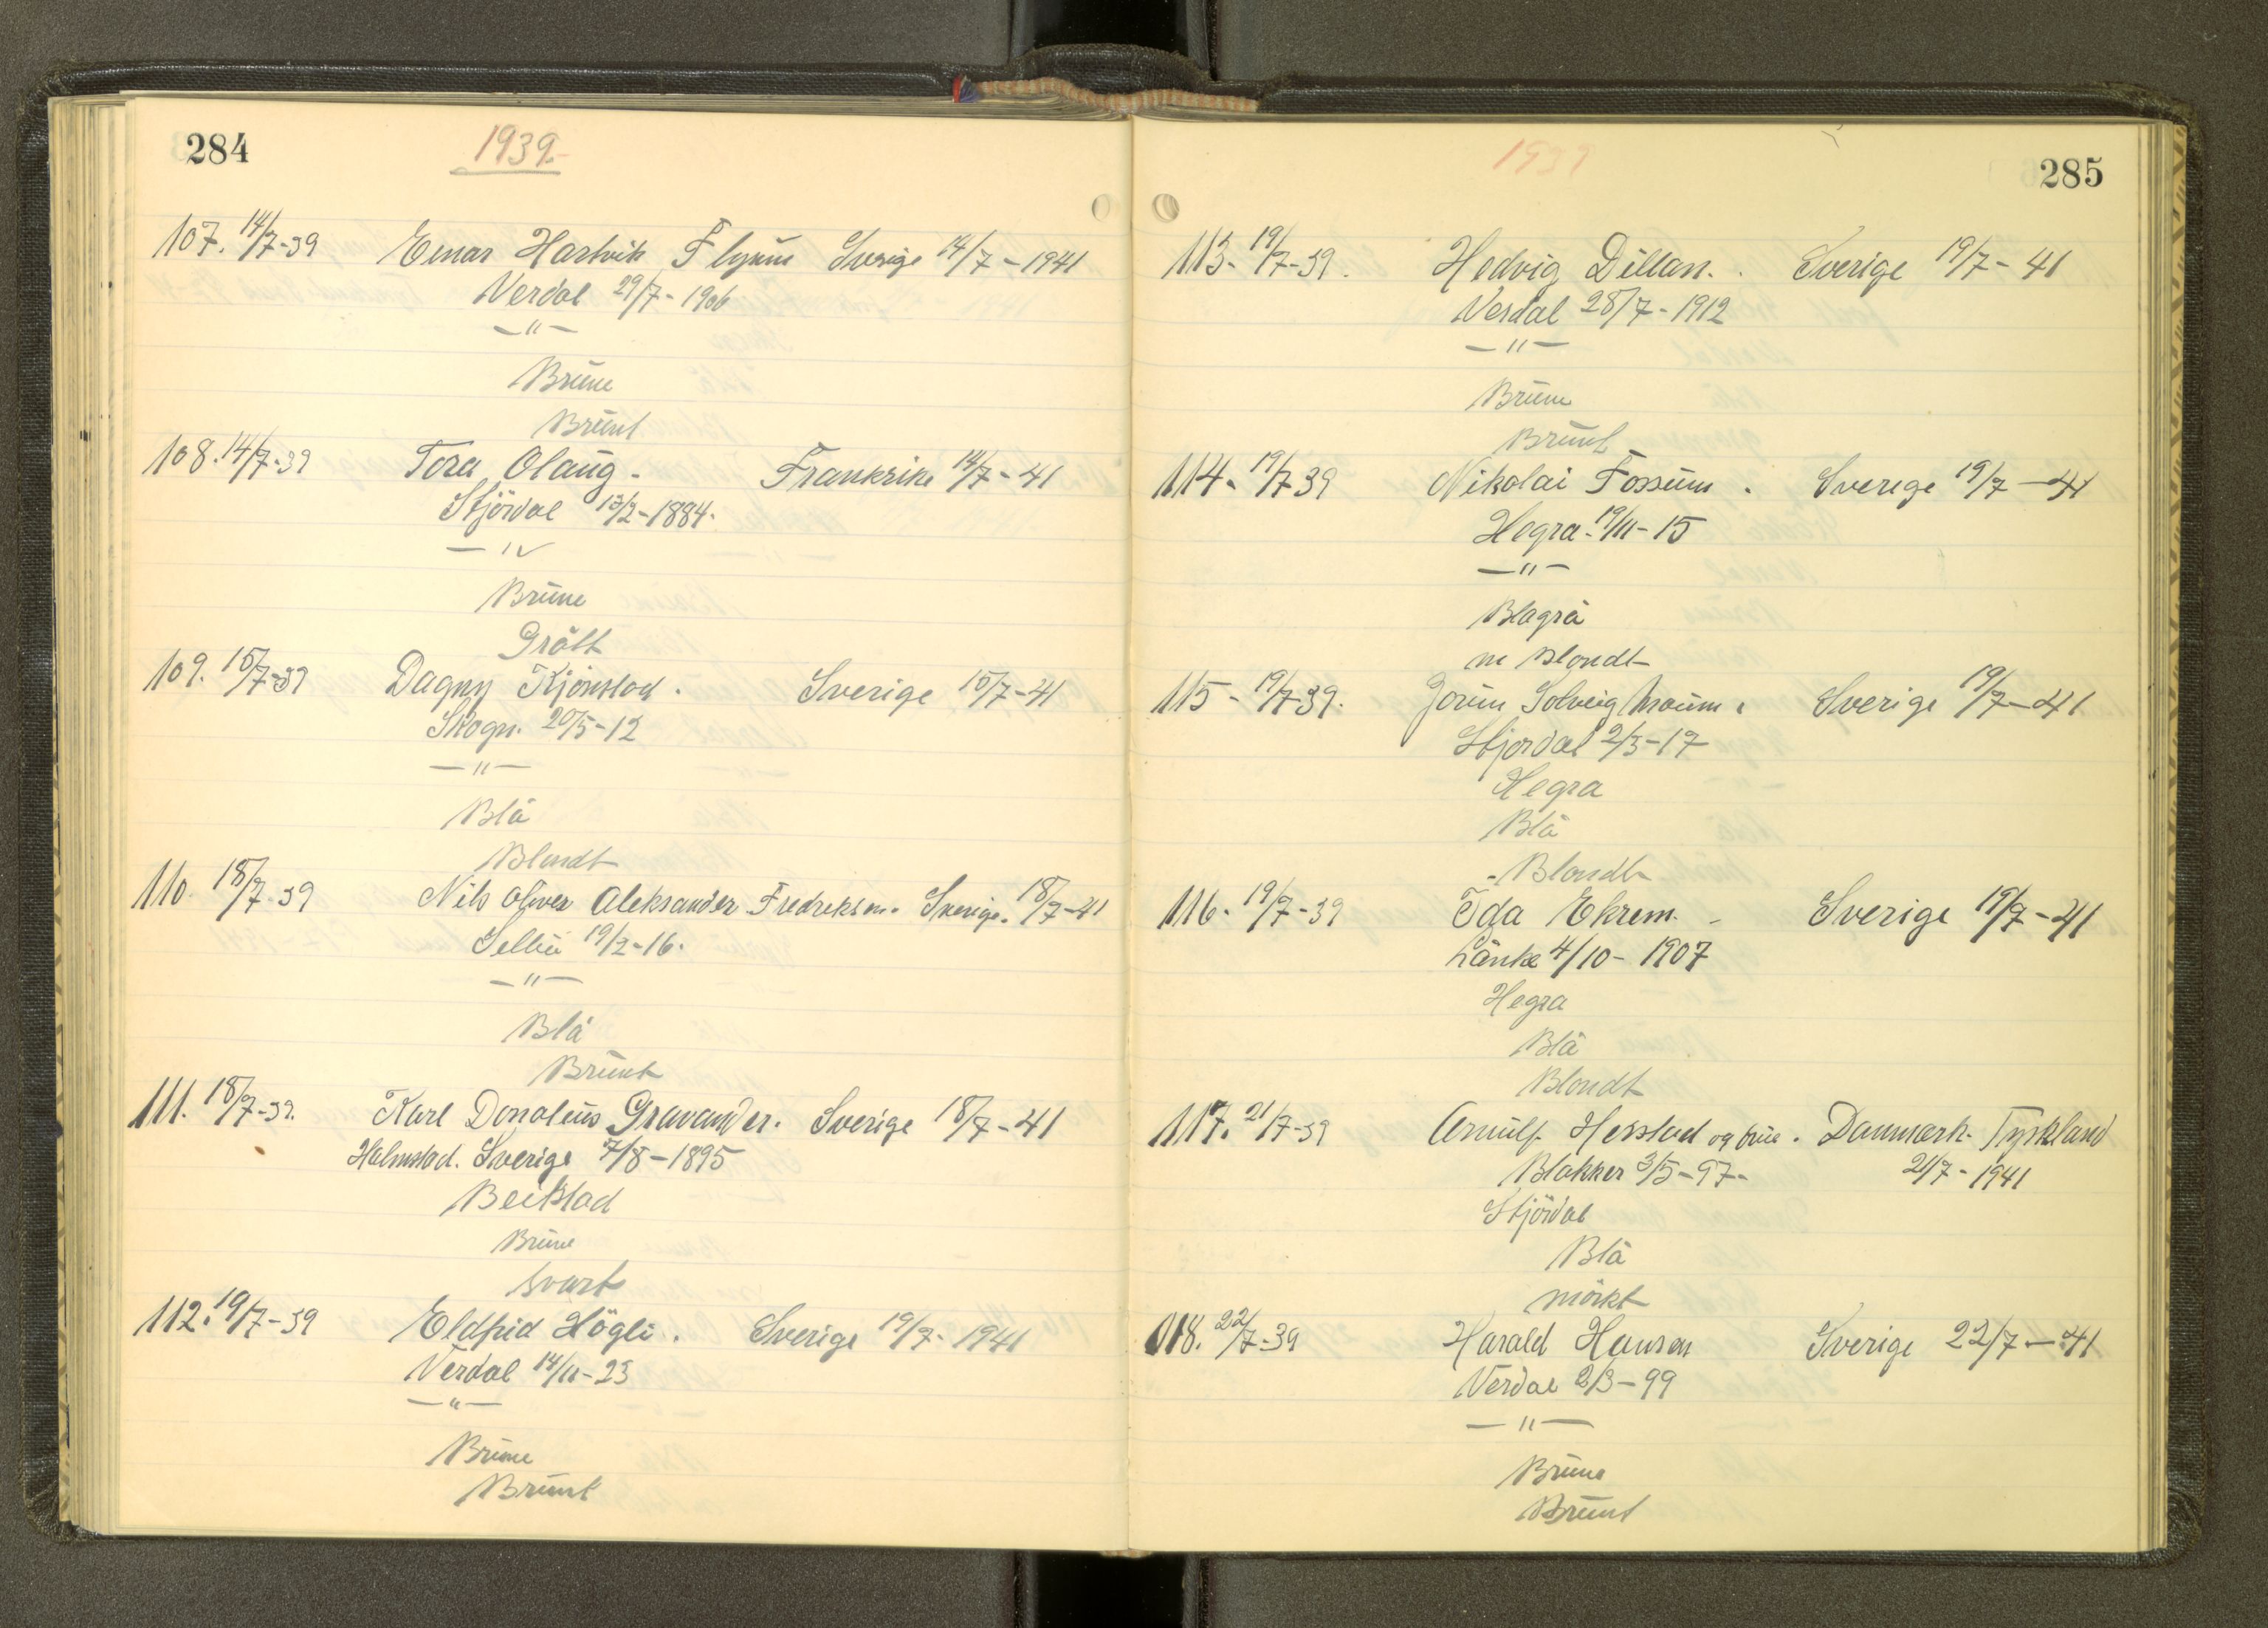 284
1939.-
107. 14/7-39 Einar Hartvik Flynum Sverige 14/7-1941
Verdal 29/7-1906
-"-
Brune
Brunt
108. 14/7-39 Tora Olaug. Frankrike 14/7-41
Stjördal 13/2-1884.
-"-
Brune
Grått
109. 15/7-39 Dagny Kjönstad. Sverige 15/7-41
Skogn. 20/5-12
-"-
Blå
Blondt
110. 18/7-39 Nils Oliver Aleksander Fredriksen. Sverige. 18/7-41
Selbu 19/2-16.
-"-
Blå
Brunt
111. 18/7-39. Karl Donateus Gravander. Sverige 18/7-41
Halmstad. Sverige 7/8-1895
Beitstad
Brune
Svart
112. 19/7-39 Eldfrid Högli. Sverige 19/7-1941
Verdal 14/11-23
-"-
Brune
Brunt
1939
285
113. 19/7-39. Hedvig Dillan. Sverige 19/7-41
Verdal 28/7-1912
-"-
Brune
Brunt
114. 19/7 39 Nikolai Fossum. Sverige 19/7-41
Hegra. 19/11-15
-"-
Blagrå
m Blondt
115- 19/7-39. Jorun Solveig Maum. Sverige 19/7-41
Stjordal 2/3-17
Hegra
Blå
Blondt
116. 19/7-39 Ida Ekrem. Sverige 19/7-41
Lånke 4/10-1907
Hegra
Blå
Blondt
117. 21/7-39 Arnulf Hesstad og frue. Danmark. Tyskland
Blakker 3/5-97- 21/7-1941
Stjördal
Blå
mörkt
118. 22/7-39 Harald Hansen Sverige 22/7-41
Verdal 2/3-99
-"-
Brune
Brunt